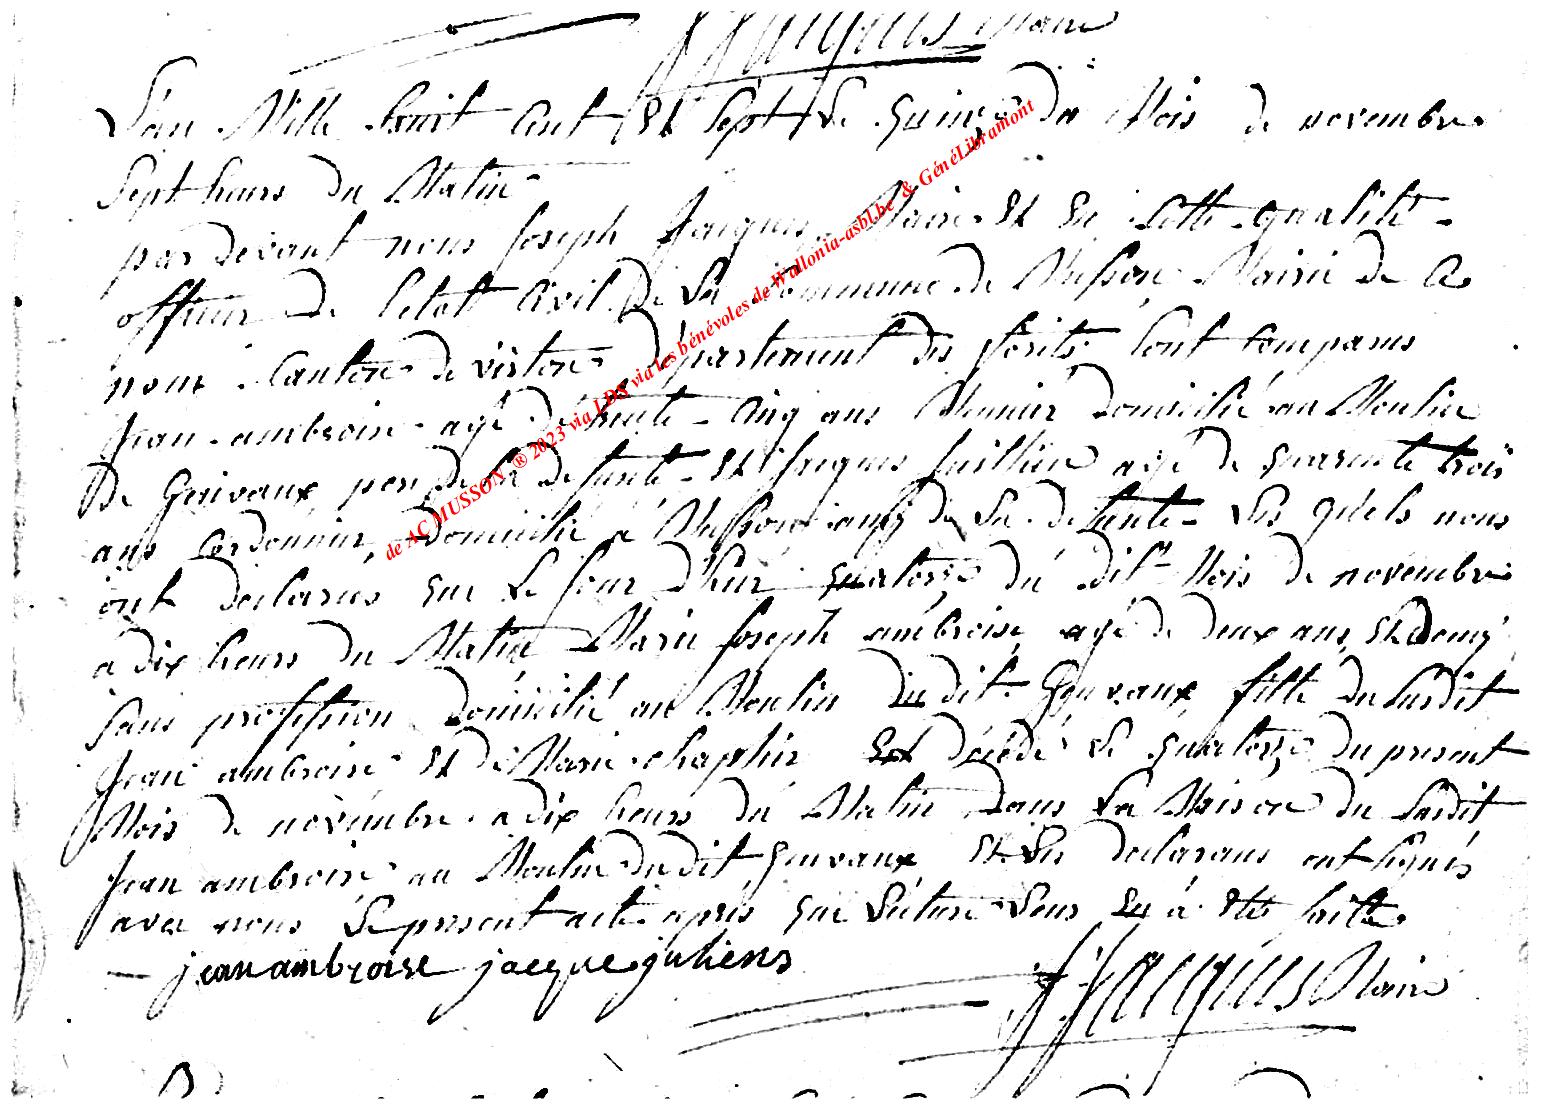 J J Jacques Maire
L'an Mille huit Cent Et Sept Le Quinze du Mois de novembre
Sept heurs du Matin
par devant nous Joseph Jacques Maire Et En Cette qualité
officier de letat Civil de La Commune de Musson Mairie de Ce
nom Canton de virton département des forêts Sont Comparus
Jean ambroise agé de trente Cinq ans Meunier Domicilié au Moulin
de Genvaux pere de la defunte Et Jacques Juillien agé de quarante trois
ans Cordonnier, Domicilié à Musson de La defunte Les quels nous
ont declarés que Le Jour d'hier quatorze du dit Mois de novembre
a dix heurs du Matin Marie Joseph ambroise agé de deux ans Et Demy
sans profession Domicilié au Moulin du dit Genvaux fille du Susdit
Jean ambroise Et de Marie chaplier Est décédé Le quatorze du present
Mois de novembre a dix heurs du Matin Dans La Maison du Susdit
Jean ambroise au Moulin du dit Genvaux Et Les declarans ont signés
avec nous Le present acte apres que Lecture Leur En à Eté faitte
jean ambroise jacque juliens
J J Jacques Maire
de AC MUSSON ® 2023 via LDS via les bénévoles de Wallonia-asbl.be & GénéLibramont